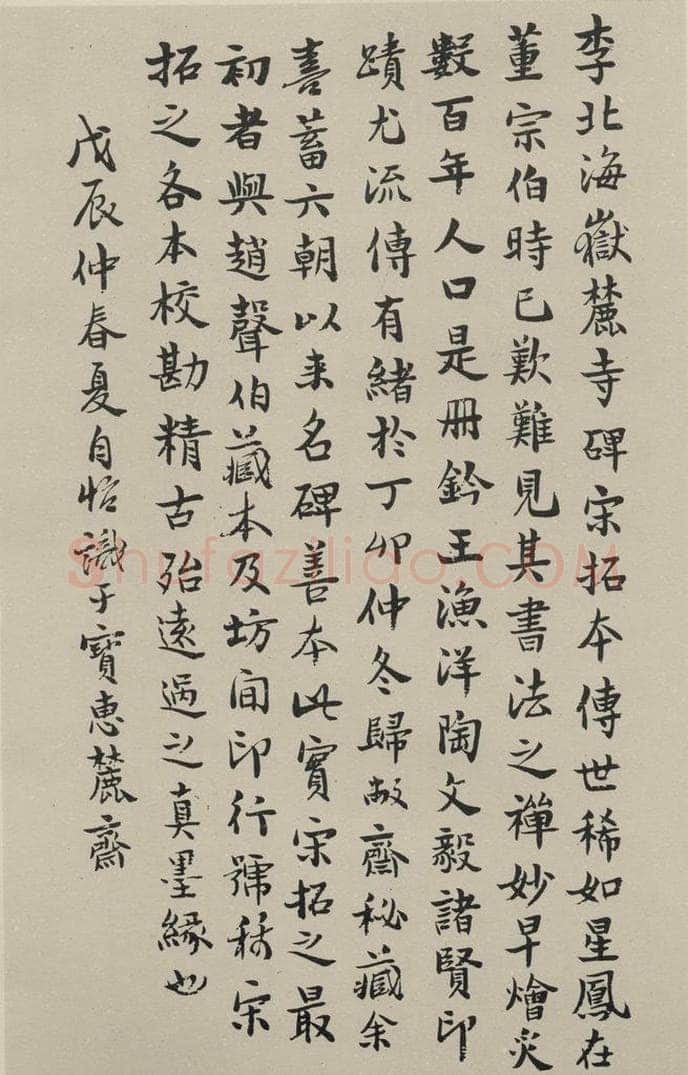 李北海嶽麓寺碑宋拓本傳世稀如星鳳在
董宗伯時已歎難見其書法之禪妙早燴炙
數百年人口是冊鈐王漁洋陶文毅諸賢印
蹟尤流傳有緒於丁卯仲冬歸敝齋秘藏余
喜蓄六朝以来名碑善本此實宋拓之最
初者與趙聲伯藏本及坊间印行號稱宋
拓之各本校勘精古殆遠過之真墨緣也
戊辰仲春夏自怡識于寶惠麓齋
Shufaziliao.COM